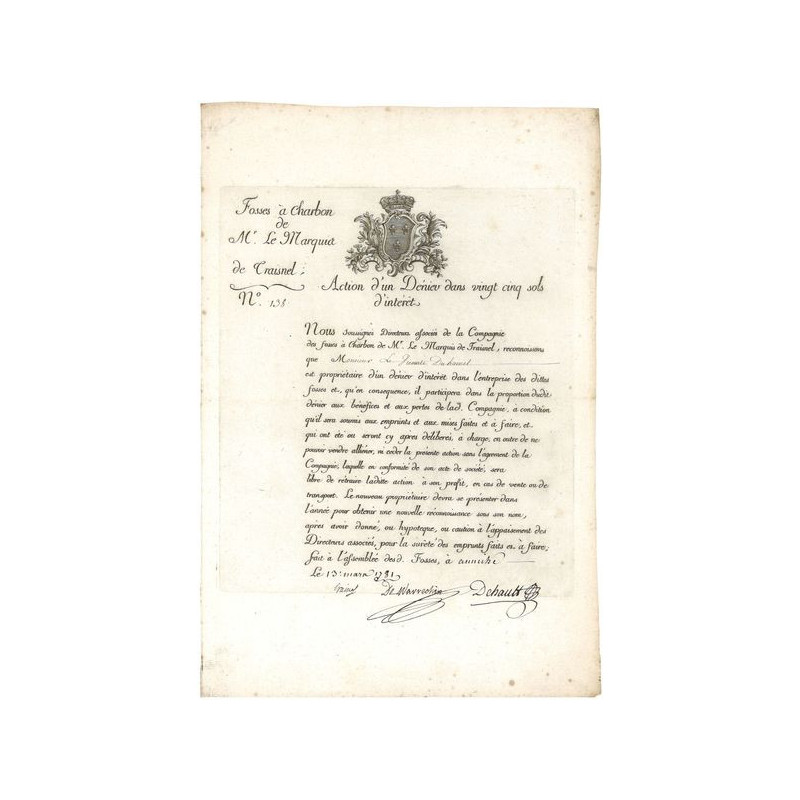 Fosses à Charbon
de
Mr. Le Marquis
de Traisnel;
No. 138
Action d'un Dénier dans vingt cinq sols
d'intérêt
Nous Soussignés Directeurs associés de la Compagnie
des fosses à Charbon de Mr. Le Marquis de Traisnel, reconnaissons
que Monsieur Le
est propriétaire d'un dénier d'intérêt dans l'entreprise des dittes
fosses et, qu'en consequence, il participera dans la proportion dudit
dénier aux bénéfices et aux pertes de lad. Compagnie, a condition
qu'il sera soumis aux emprunts et aux mises faites et à faire, et
qui ont été ou seront cy apres déliberés, à charge, en outre de ne
pouvoir vendre alliéner, ni ceder la présente action sans l'agrement de la
Compagnie, laquelle en conformité de son acte de société, sera
libre de retraire laditte action à son profit, en cas de vente ou de
transport. Le nouveau propriétaire devra se présenter dans
l'année pour obtenir une nouvelle réconnoissance sous son nom,
apres avoir donné, ou hypoteque, ou caution à l'appaisement des
Directeurs associés, pour la sureté des emprunts faits et à faire;
fait à l'assemblée des d. Fosses, à aniche
Le 13: mars 1781
De Warenghien Dehault